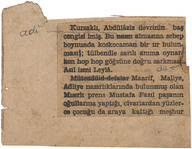 adi
Kurnaklı, Abdülâziz devrinin baş
çengisi imiş. Bu nam almasına sebep
boynunda koskocaman bir ur bulun-
ması; tülbendle sarılı amma oynar-
ken hop hop göğsüne doğru sarkması.
Asıl ismi Leylâ.
Müteaddid defalar Maarif, Maliye,
Adliye nazırlıklarında bulunmuş olan
Mısırlı prens Mustafa Fazıl paşanın
oğullarına yaptığı, civarlardan yüzler-
ce çocuğu da araya kattığı meşhur